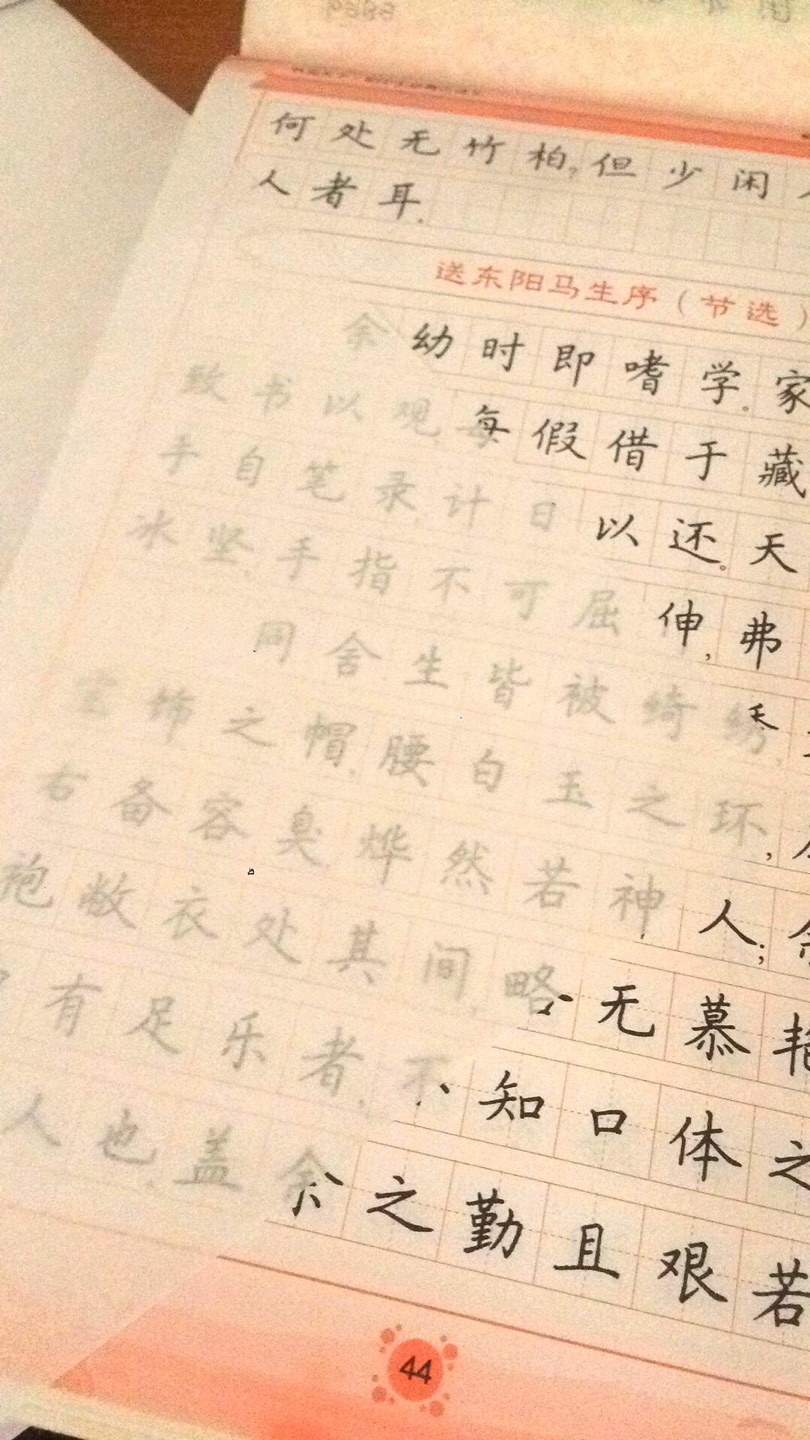 何处无竹柏?但少闲
人者耳。
送东阳马生序(节选)
余幼时即嗜学。家
致书以观,每假借于藏
手自笔录,计日以还。天
冰坚,手指不可屈伸,弗
同舍生皆被绮绣,
宝饰之帽,腰白玉之环,
右备容臭,烨然若神人;余
袍敝衣处其间,略无慕艳
有足乐者,不知口体之
人也。盖余之勤且艰若
44